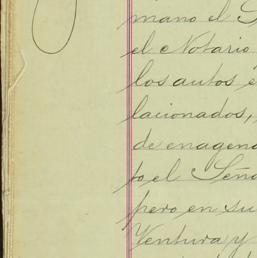 mano el S
el Notario
los autos e
lacionados,
de enagena
to el Seño
pero en su
Ventura y